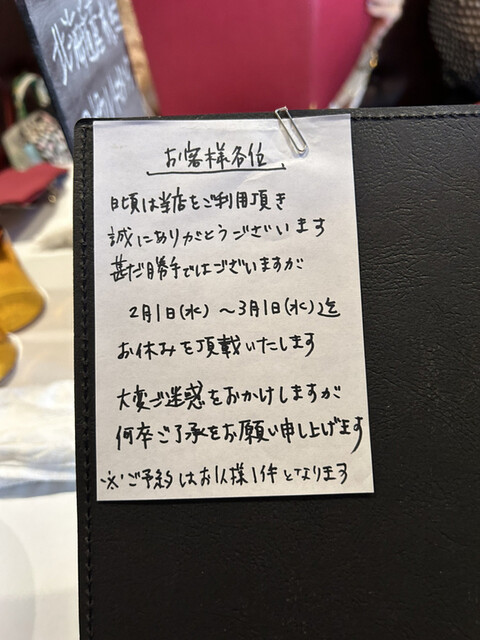 北海道
お客様各位
日頃は当店をご利用頂き
誠にありがとうございます
甚だ勝手ではございますが
2月1日(水)～3月1日(水)迄
お休みを頂戴いたします
大変ご迷惑をおかけしますが
何卒ご了承をお願い申し上げます
※ご予約はお1人様1件となります